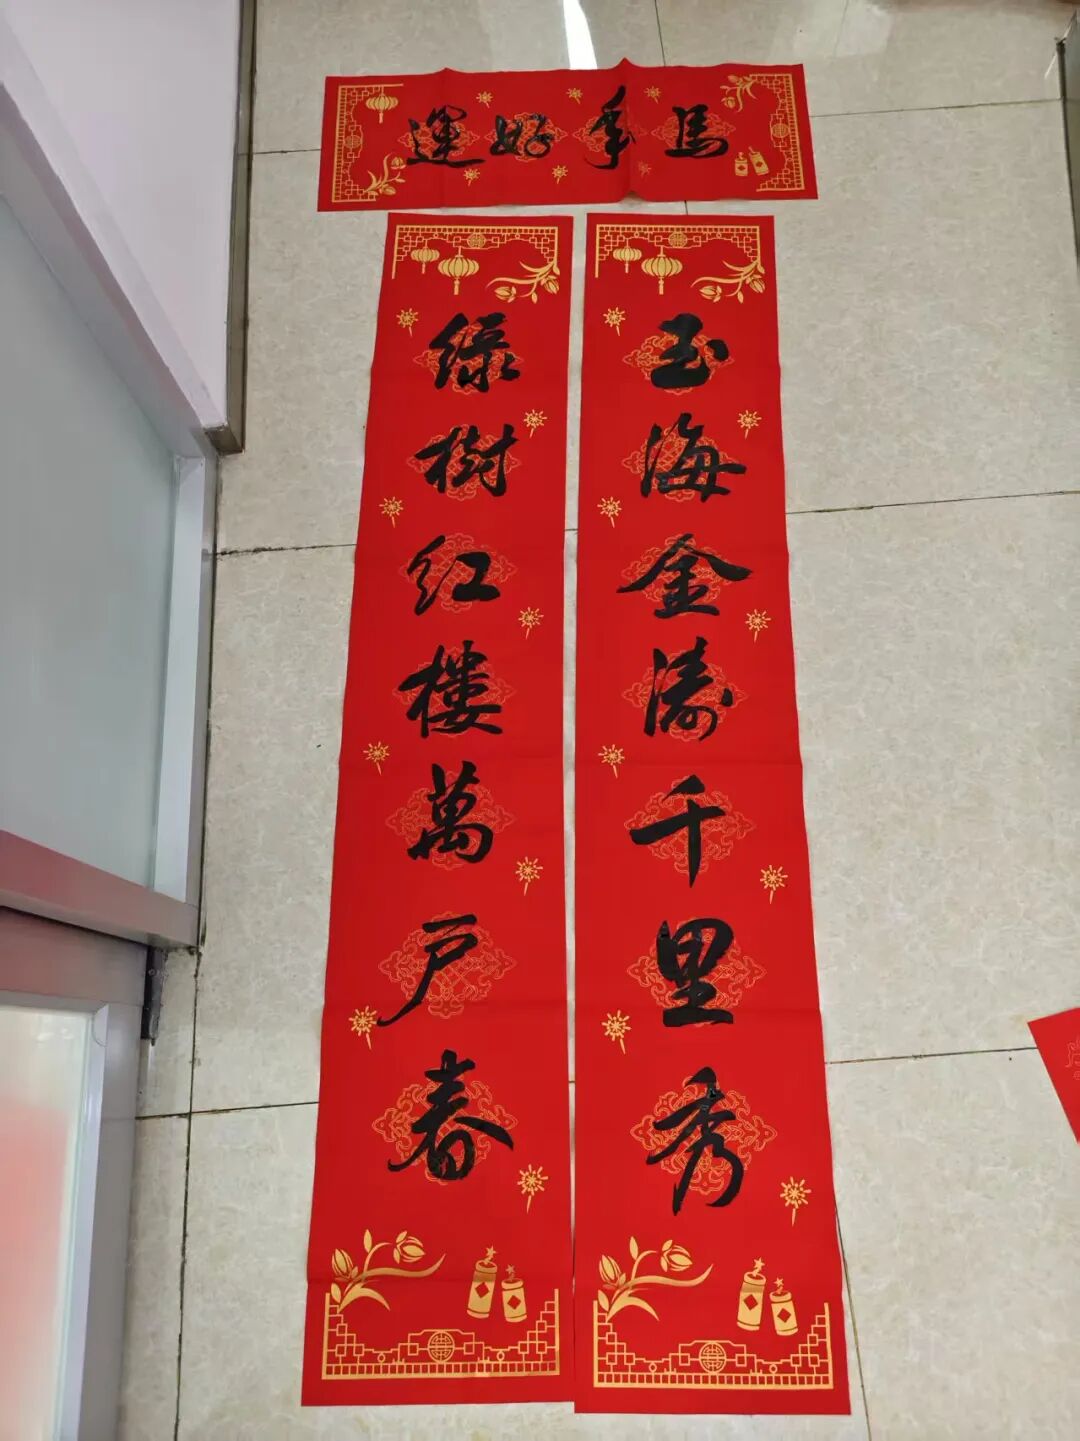 馬年好運
玉海金濤千里秀
綠樹红樓萬户春